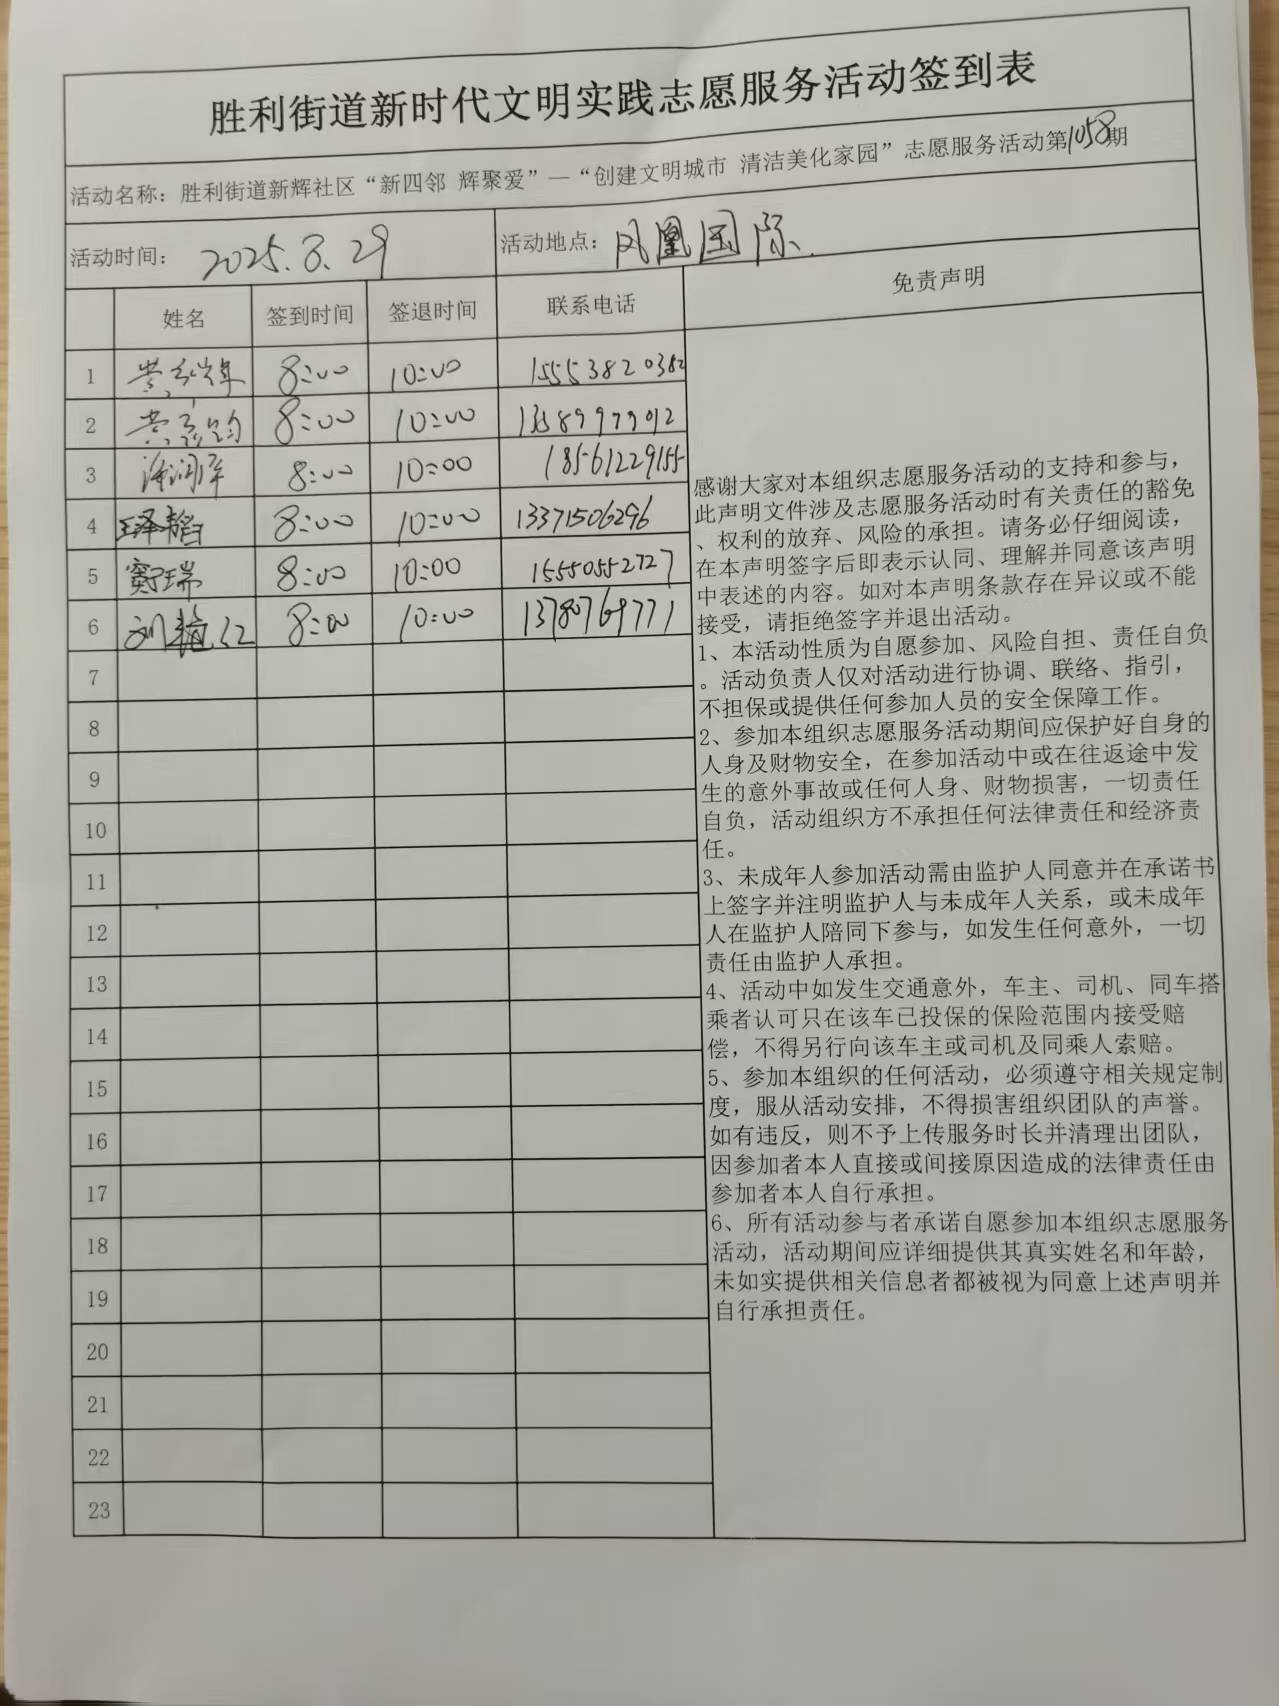 胜利街道新时代文明实践志愿服务活动签到表
活动名称：胜利街道新辉社区“新四邻 辉聚爱”—“创建文明城市 清洁美化家园”志愿服务活动第1058期
活动时间： 2025.8.29 活动地点： 凤凰国际
姓名 签到时间 签退时间 联系电话 免责声明
1 8:00 10:00 15553820382
2 8:00 10:00
3 8:00 10:00 18561229155
4 8:00 10:00 13371506296
5 窦瑞 8:00 10:00 15550552727
6 刘艳红 8:00 10:00 13780769771
7
8
9
10
11
12
13
14
15
16
17
18
19
20
21
22
23
感谢大家对本组织志愿服务活动的支持和参与，
此声明文件涉及志愿服务活动时有关责任的豁免
、权利的放弃、风险的承担。请务必仔细阅读，
在本声明签字后即表示认同、理解并同意该声明
中表述的内容。如对本声明条款存在异议或不能
接受，请拒绝签字并退出活动。
1、本活动性质为自愿参加、风险自担、责任自负
。活动负责人仅对活动进行协调、联络、指引，
不担保或提供任何参加人员的安全保障工作。
2、参加本组织志愿服务活动期间应保护好自身的
人身及财物安全，在参加活动中或在往返途中发
生的意外事故或任何人身、财物损害，一切责任
自负，活动组织方不承担任何法律责任和经济责
任。
3、未成年人参加活动需由监护人同意并在承诺书
上签字并注明监护人与未成年人关系，或未成年
人在监护人陪同下参与，如发生任何意外，一切
责任由监护人承担。
4、活动中如发生交通意外，车主、司机、同车搭
乘者认可只在该车已投保的保险范围内接受赔
偿，不得另行向该车主或司机及同乘人索赔。
5、参加本组织的任何活动，必须遵守相关规定制
度，服从活动安排，不得损害组织团队的声誉。
如有违反，则不予上传服务时长并清理出团队，
因参加者本人直接或间接原因造成的法律责任由
参加者本人自行承担。
6、所有活动参与者承诺自愿参加本组织志愿服务
活动，活动期间应详细提供其真实姓名和年龄，
未如实提供相关信息者都被视为同意上述声明并
自行承担责任。